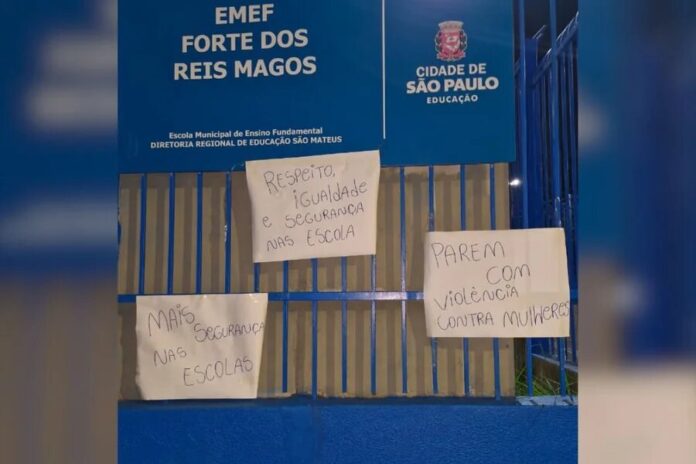 EMEF
FORTE DOS
REIS MAGOS
Escola Municipal de Ensino Fundamental
DIRETORIA REGIONAL DE EDUCAÇÃO SÃO MATEUS
CIDADE DE
SÃO PAULO
EDUCAÇÃO
RESPEITO,
IGUALDADE
E SEGURANÇA
NAS ESCOLA
PAREM
COM
VIOLÊNCIA
CONTRA MULHERES
MAIS
SEGURANÇA
NAS
ESCOLAS